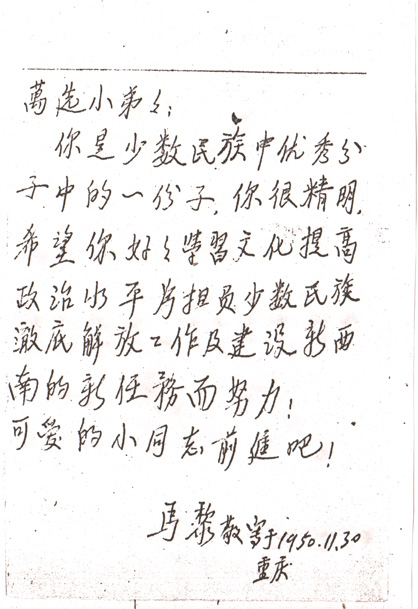 萬选小弟々:
你是少数民族中优秀分
子中的一份子,你很精明,
希望你好々学習文化提高
政治水平为担负少数民族
澈底解放工作及建设新西
南的新任務而努力!
可愛的小同志前進吧!
马黎敬写于1950.11.30
重庆